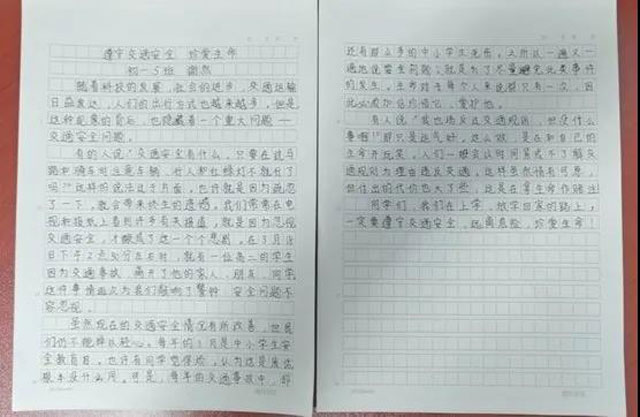 遵守交通安全 珍爱生命
初一5班
随着科技的发展,社会的进步,交通运输
日益发达,人们的出行方式也越来越多。但是
这种现象的背后,也隐藏着一个重大问题——
交通安全问题。
有的人说“交通安全有什么,只要在过马
路和骑车时注意车辆、行人和红绿灯不就行了
吗?”这样的说法过于片面,也许就是因为疏忽
了一下,就会带来终生的遗憾。我们常常在电
视和报纸上看到许多有关报道,就是因为忽视
交通安全,才酿成了这一个个悲剧。在3月
日下午2点30分左右时,就有一位高二的学生
因为交通事故,离开了他的家人、朋友、同学。
这件事情再次为我们敲响了警钟,安全问题不
容忽视。
虽然现在的交通安全情况有所改善,但我
们仍不能掉以轻心。每年的3月是中小学生安
全教育月。也许有同学觉得,认为这是
根本没什么用。可是,每年的交通事故中,都
还有那么多的中小学生死伤。之所以一遍又一
遍地说安全问题,就是为了尽量避免此类事件
的发生。生命对于每个人来说都只有一次,因
此必须好好珍惜它,爱护他。
有人说“我也违反过交通规则,但没什么
事啊!”那只是运气好,这么做,是在和自己的
生命开玩笑。人们一般会以时间紧或不了解交
通规则为理由违反交通,这样虽然情有可原,
但付出的代价也太大了些,这是在拿生命作赌注
同学们,我们在上学、放学回家的路上,
一定要遵守交通安全,远离危险,珍爱生命!